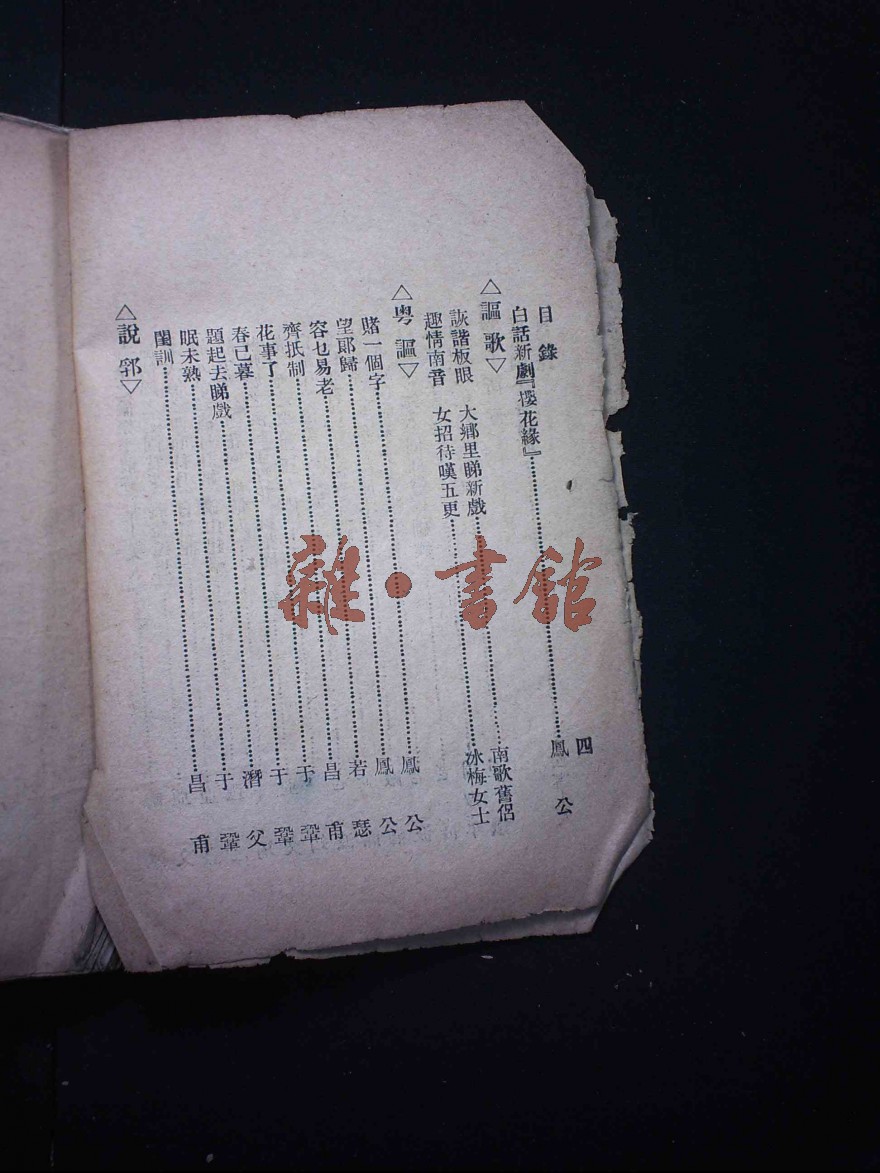 目錄 四
白話新劇『櫻花緣』 鳳公
△謳歌▽
詼諧板眼 大鄉里睇新戲 南歌舊侶
趣情南音 女招待嘆五更 冰梅女士
△粵謳▽
賭一個字 鳳公
望郎歸 鳳公
容乜易老 若瑟
齊抵制 昌甫
花事了 于鞏
春已暮 于鞏
題起去睇戲 潛父
眠未熟 于鞏
閨訓 昌甫
△說郛▽
雜·書館